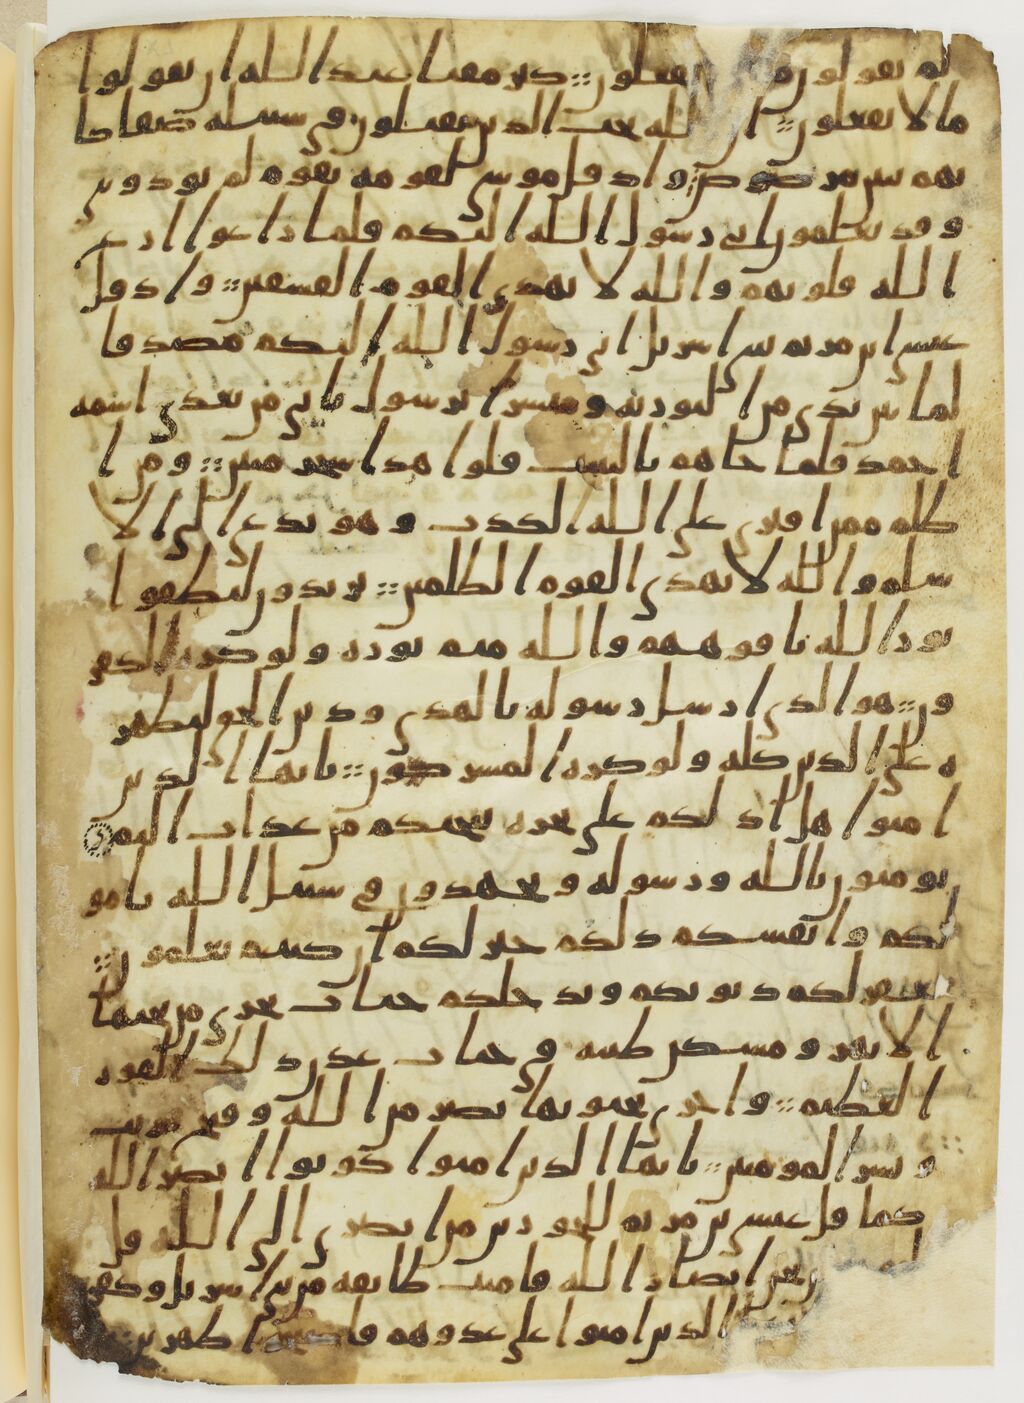 لم تقولون ما تفعلون كبر مقتا عند الله ان تقولوا
ما لا تفعلون ان الله يحب الذين يقتلون في سبيله صفا كا
نهم بنين مرصوص واذ قل موسى لقومه يقوم لم توذونني
وقد تعلمون اني رسول الله اليكم فلما زاغوا ازغ
الله قلوبهم والله لا يهدي القوم الفسقين واذ قل
عيسى ابن مريم يبني اسريل اني رسول الله اليكم مصدقا
لما بين يدي من التورية ومبشرا برسول ياتي من بعدي اسمه
احمد فلما جاهم بالبينت قلوا هذا سحر مبين ومن ا
ظلم ممن افترى على الله الكذب وهو يدعى الى الا
سلم والله لا يهدي القوم الظلمين يريدون ليطفوا
نور الله بافوههم والله متم نوره ولو كره الكفر
ون هو الذي ارسل رسوله بالهدى ودين الحق ليظهر
ه على الدين كله ولو كره المشركون يايها الذين
امنوا هل ادلكم على تجرة تنجيكم من عذاب اليم
تومنون بالله ورسوله وتجهدون في سبيل الله بامو
لكم وانفسكم ذلكم خير لكم ان كنتم تعلمون
يغفر لكم ذنوبكم ويدخلكم جنات تجري من تحتها
الانهر ومسكن طيبة في جنات عدن ذلك الفوز
العظيم واخرى تحبونها نصر من الله وفتح قريب
وبشر المومنين يايها الذين امنوا كونوا انصر الله
كما قل عيسى بن مريم للحورين من انصري الى الله قل
نحن انصار الله فامنت طايفة من بني اسريل وكفر
الذين امنوا على عدوهم فاصبحوا ظهرين